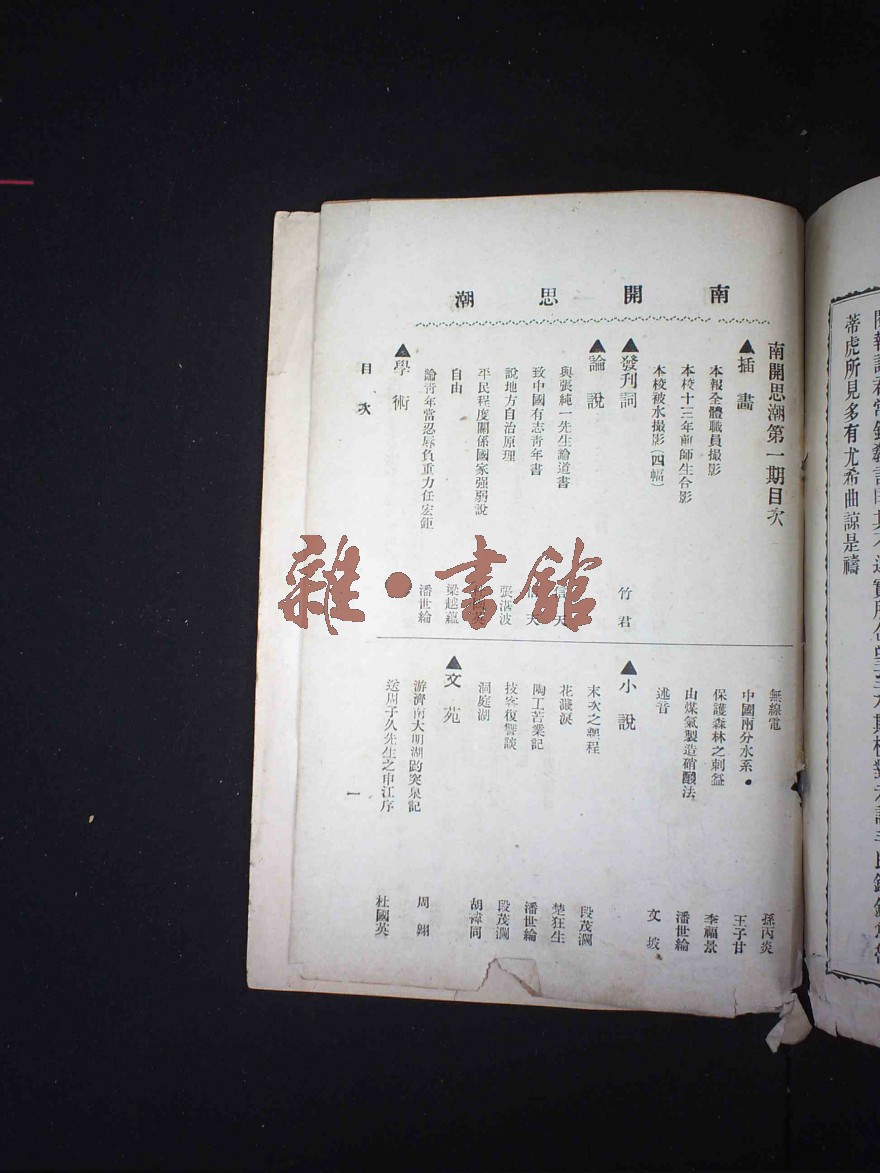 蒂虎所見多有尤希曲諒是禱
南開思潮
南開思潮第一期目次
▲插畫
本報全體職員撮影
本校十三年前師生合影
本校被水撮影(四幅)
▲發刊詞 竹君
▲論說
與張純一先生論道書 信天
致中國有志青年書 信天
說地方自治原理 張湛波
平民程度關係國家强弱說
自由 梁越蘊
論青年當忍辱負重力任宏鉅 潘世綸
▲學術
目次
無線電 孫丙炎
中國兩分水系 王子甘
保護森林之利益 李福景
由煤氣製造硝酸法 潘世綸
述音 文坡
▲小說
末次之課程 段茂瀾
花濺淚 楚狂生
陶工苦業記 潘世綸
技客復讐談 段茂瀾
洞庭湖 胡禕同
▲文苑
游濟南大明湖趵突泉記 周翊
送周子久先生之申江序 杜國英
一
雜·書館